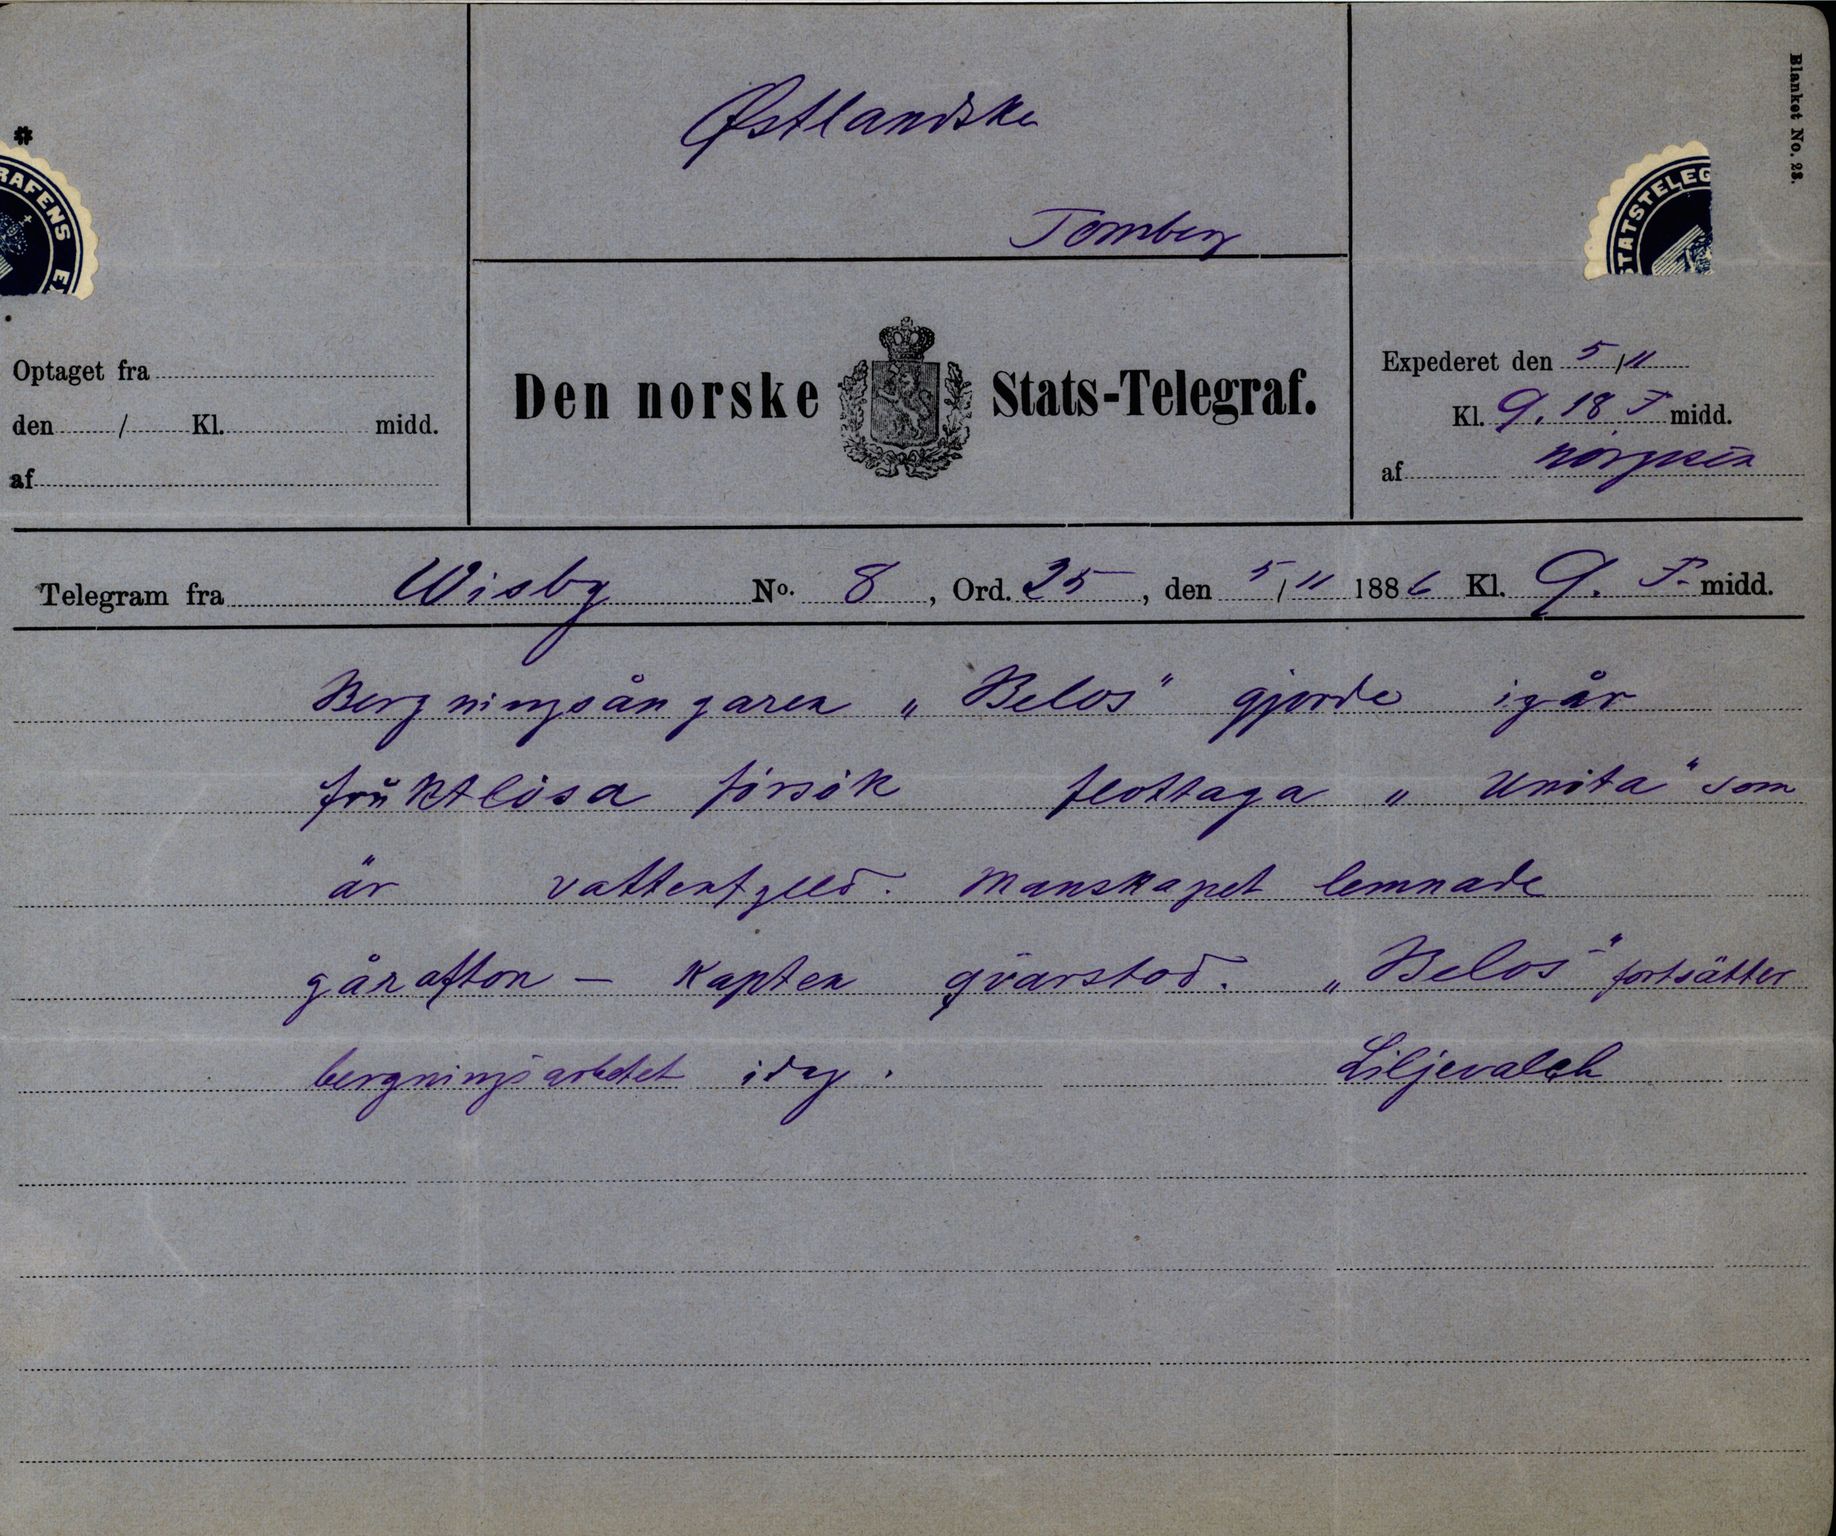 Blanket No. 28.
Østlandske
Tomberg
*
RAFENS E
STATSTELEG
Optaget fra
den / Kl. midd.
af
Den norske Stats-Telegraf.
Expederet den 5/11
Kl. 9.18 F midd.
af
Telegram fra Wisby No. 8, Ord. 25, den 5/11 1886 Kl. 9. F. midd.
Bergningsångaren „Belos" gjorde igår
fruktlösa försök flottaga „Unita" som
är vattenfyld. Manskapet lemnade
gårafton — Kapten qvarstod. „Belos" fortsätter
bergningsarbetet idag. Liljevalch